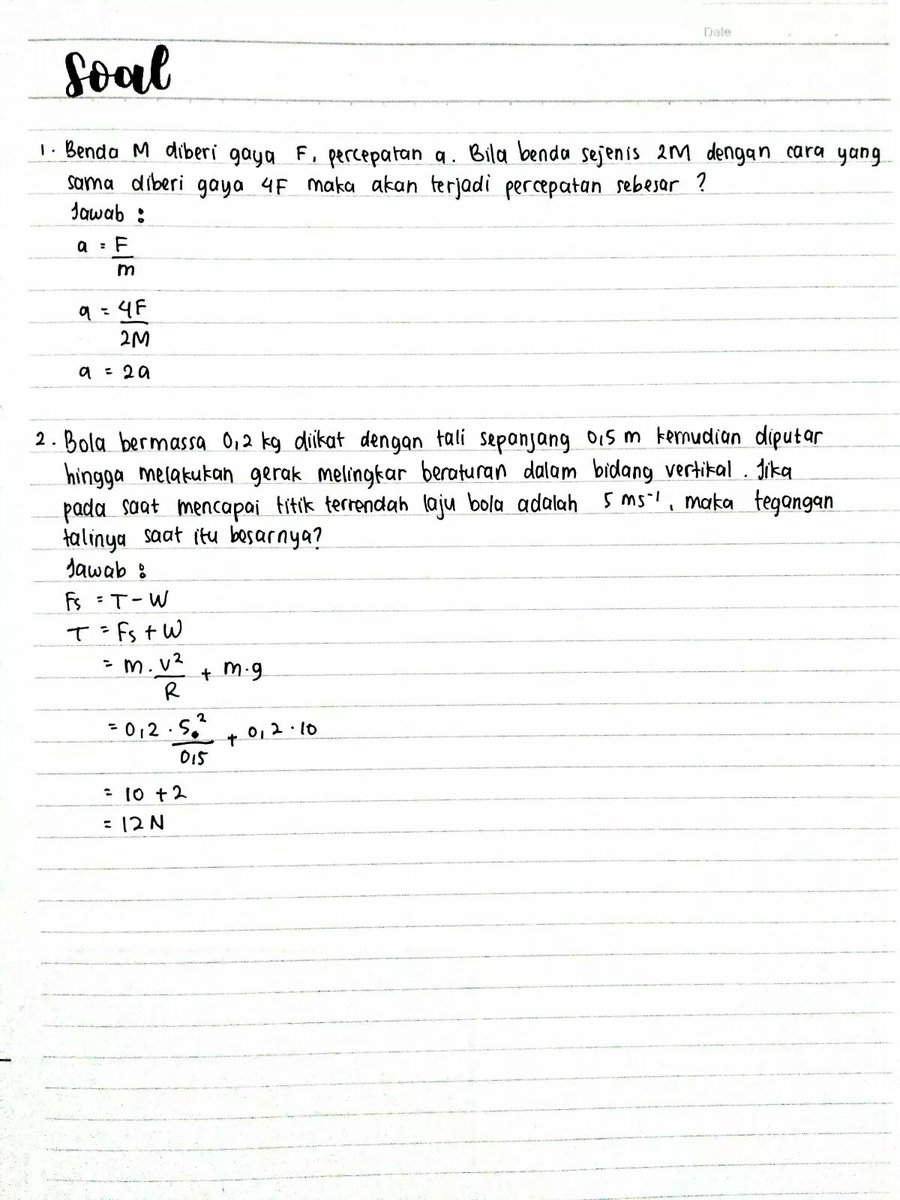 Date
Soal
1. Benda M diberi gaya F, percepatan a. Bila benda sejenis 2M dengan cara yang
sama diberi gaya 4F maka akan terjadi percepatan sebesar ?
Jawab :
a = F/m
a = 4F/2M
a = 2a
2. Bola bermassa 0,2 kg diikat dengan tali sepanjang 0,5 m kemudian diputar
hingga melakukan gerak melingkar beraturan dalam bidang vertikal. Jika
pada saat mencapai titik terrendah laju bola adalah 5 ms⁻¹, maka tegangan
talinya saat itu besarnya?
Jawab :
Fs = T - W
T = Fs + W
= m . v²/R + m.g
= 0,2 . 5²/0,5 + 0,2 . 10
= 10 + 2
= 12 N